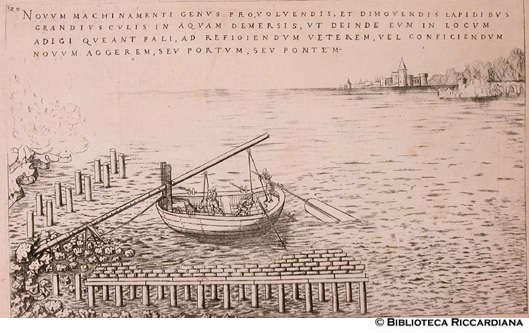 20
NOVVM MACHINAMENTI GENVS PROVOLVENDIS, ET DIMOVENDIS LAPIDIBVS
GRANDIVSCVLIS IN AQVAM DEMERSIS, VT DEINDE EVM IN LOCVM
ADIGI QVEANT PALI, AD REFICIENDVM VETEREM, VEL CONFICIENDVM
NOVVM AGGEREM, SEV PORTVM, SEV PONTEM.
© BIBLIOTECA RICCARDIANA